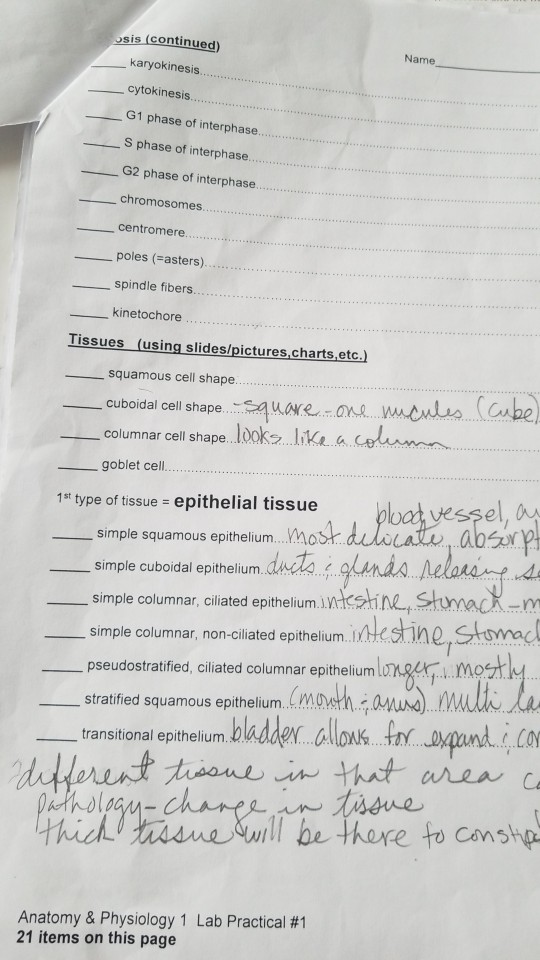 osis (continued)
Name
karyokinesis
cytokinesis
G1 phase of interphase
S phase of interphase
G2 phase of interphase
chromosomes
centromere
poles (=asters)
spindle fibers
kinetochore
Tissues (using slides/pictures,charts,etc.)
squamous cell shape
cuboidal cell shape -square - one nucules (cube)
columnar cell shape looks like a column
goblet cell
1st type of tissue = epithelial tissue
blood vessel,
simple squamous epithelium most delicate, absorpt
simple cuboidal epithelium ducts & glands releasing
simple columnar, ciliated epithelium intestine, stomach - m
simple columnar, non-ciliated epithelium intestine, stomach
pseudostratified, ciliated columnar epithelium longer, mostly
stratified squamous epithelium (mouth & anus) multi la
transitional epithelium bladder allows for expand & con
different tissue in that area
pathology - change in tissue
thick tissue will be there to
Anatomy & Physiology 1 Lab Practical #1
21 items on this page